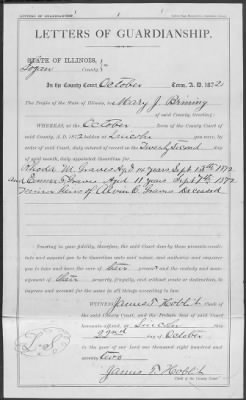 LETTERS OF GUARDIANSHIP.
LETTERS OF GUARDIANSHIP.
STATE OF ILLINOIS,
Logan County, ss.
In the County Court, October Term, A. D. 1872
The People of the State of Illinois, to Mary J. Birning
of said County, Greeting:
WHEREAS, at the October Term of the County Court of
said County, A. D. 1872 holden at Lincoln you were, by
order of said Court, duly entered of record on the Twenty Second day of
said month, duly appointed Guardian for
Rhoda M. Graves Aged 14 years Sept 13th 1872
and Aged 11 years Sept 7th 1872
minor heirs of Alvin C. Graves Deceased
Trusting in your fidelity, therefore, the said Court does by these presents consti-
tute and appoint you Guardian as aforesaid, and authorize and require
you to take and have the care of their persons and the custody and manage-
ment of their property, frugally, without waste or destruction, to
improve and account for the same in all things according to law.
L.S.
WITNESS, James T. Hoblit Clerk
of the said County Court, and the Probate Seal of said
Court hereunto affixed, at Lincoln this
22nd day of October
in the year of our Lord one thousand eight hundred and
seventy two
James T. Hoblit
Clerk of the County Court.